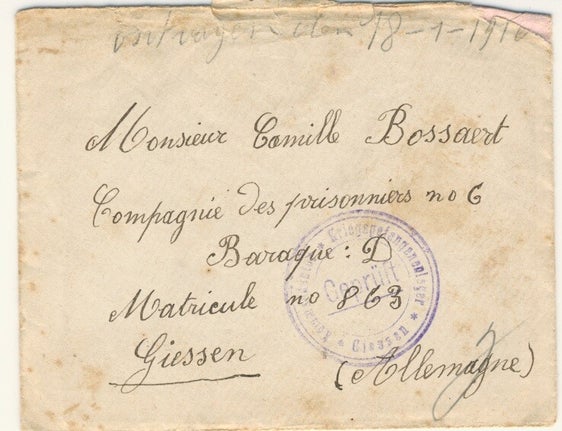 ontvangen den 18-1-1916
Monsieur Camille Bossaert
Compagnie des prisonniers no 6
Baraque: D
Matricule no 863
Giessen (Allemagne)
Kriegsgefangenenlager
Geprüft
Giessen